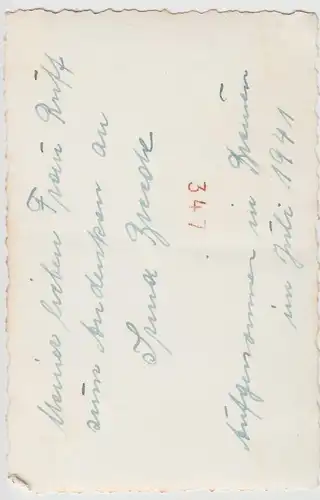 Meiner lieben Frau Ruff
zum Andenken an
Irma
347
Aufgenommen in Bremen
im Juli 1941